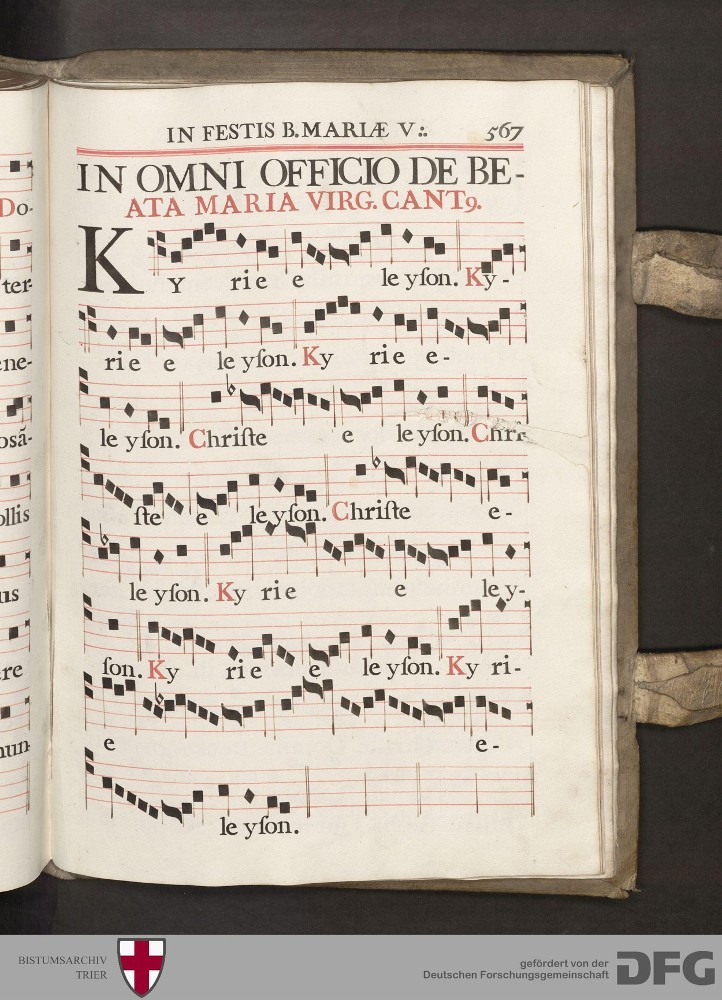 IN FESTIS B. MARIÆ V:. 567
IN OMNI OFFICIO DE BE-
ATA MARIA VIRG. CANT9.
KY rie e leyſon. Ky-
rie e leyſon. Ky rie e-
leyſon. Chriſte e leyſon. Chri-
ſte e leyſon. Chriſte e-
leyſon. Ky rie e ley-
ſon. Ky rie e leyſon. Ky ri-
e e-
leyſon.
Do-
ter-
ene-
osã-
ollis
us
re
nun-
BISTUMSARCHIV
TRIER
gefördert von der
Deutschen Forschungsgemeinschaft
DFG